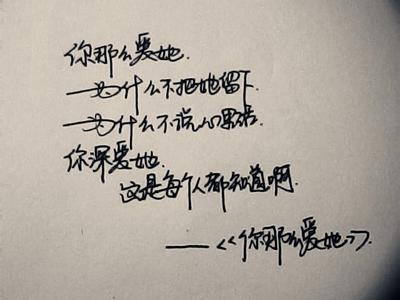 你那么爱她.
—为什么不把她留下
—为什么不说心里话.
你深爱她.
这是每个人都知道啊.
——《你那么爱她》.